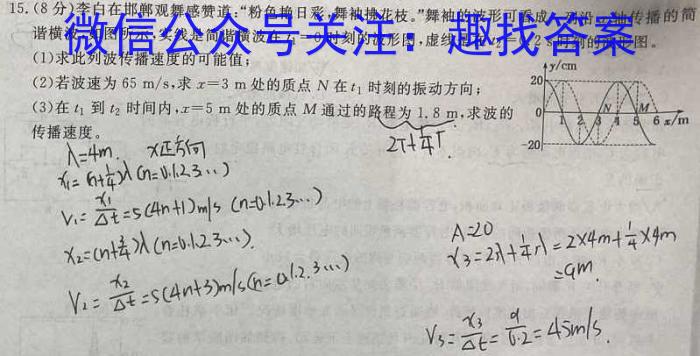 15.(8分)李白在邯郸观舞感赞道,“粉色艳日彩,舞袖拂花枝。”舞袖的波形可看成 传播的简
谐横波 时刻的波形图,虚线是
微信公众号关注:趣找答案
(1)求此列波传播速度的可能值;
(2)若波速为 65 m/s,求 x=3 m 处的质点 N 在 t₁ 时刻的振动方向;
(3)在 t₁ 到 t₂ 时间内,x=5 m 处的质点 M 通过的路程为 1.8 m,求波的
传播速度。
y/cm
20
0
-20
1 2 3 N 4 5 M 6 x/m
2T+¼T
λ=4m. x正方向
x₁=(n+¼)λ(n=0.1.2.3…)
V₁=x₁/Δt=5(4n+1)m/s (n=0.1.2.3…)
x₂=(n+¾)λ(n=0.1.2.3…).
V₂=x₂/Δt=5(4n+3)m/s(n=0.1.2.3…)
A=20
x₃=2λ+¼λ=2×4m+¼×4m
=9m.
V₃=x₃/Δt=9/0.2=45m/s.